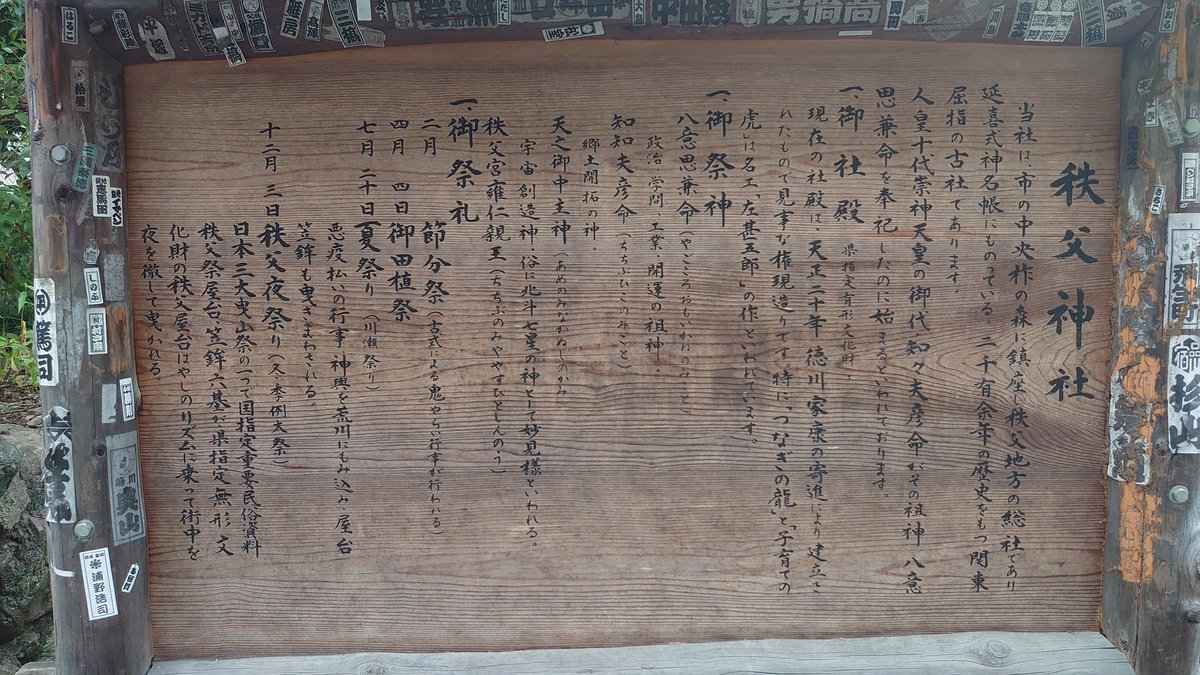 秩父神社
当社は、市の中央柞の森に鎮座し秩父地方の総社であり
延喜式神名帳にものっている、二千有余年の歴史をもつ関東
屈指の古社であります。
人皇十代崇神天皇の御代知々夫彦命がその祖神八意
思兼命を奉祀したのに始まるといわれております。
一、御社殿 県指定有形文化財
現在の社殿は、天正二十年徳川家康の寄進により建立さ
れたもので見事な権現造りです。特に「つなぎの龍」と「子育ての
虎」は名工「左甚五郎」の作といわれています。
一、御祭神
八意思兼命(やごころおもいかねのみこと)
政治、学問、工業、開運の祖神。
知知夫彦命(ちちぶひこのみこと)
郷土開拓の神。
天之御中主神(あめのみなかぬしのかみ
宇宙創造神・俗に北斗七星の神として妙見様といわれる。
秩父宮雍仁親王(ちちぶのみややすひとしんのう)
一、御祭礼
二月 節分祭(古式による鬼やらい行事が行われる)
四月 四日 御田植祭
七月 二十日 夏祭り(川瀬祭り)
悪疫払いの行事 神輿を荒川にもみ込み屋台
笠鉾も曳きまわされる。
十二月 三日 秩父夜祭り(冬季例大祭)
日本三大曳山祭の一つで国指定重要民俗資料
秩父祭屋台、笠鉾六基が県指定無形文
化財の秩父屋台ばやしのリズムに乗って街中を
夜を徹して曳かれる。
篤司
しのぶ
奥山
浦野浩司
杉山